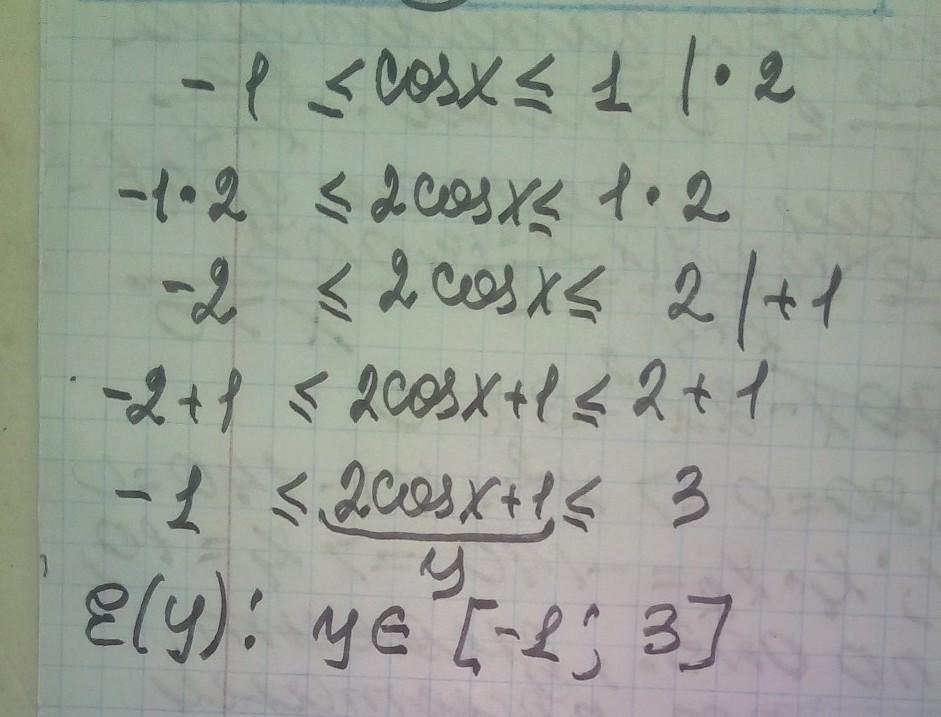 -1 ≤ cosx ≤ 1 |·2
-1·2 ≤ 2cosx ≤ 1·2
-2 ≤ 2cosx ≤ 2 |+1
-2+1 ≤ 2cosx+1 ≤ 2+1
-1 ≤ 2cosx+1 ≤ 3
y
E(y): y∈ [-1; 3]